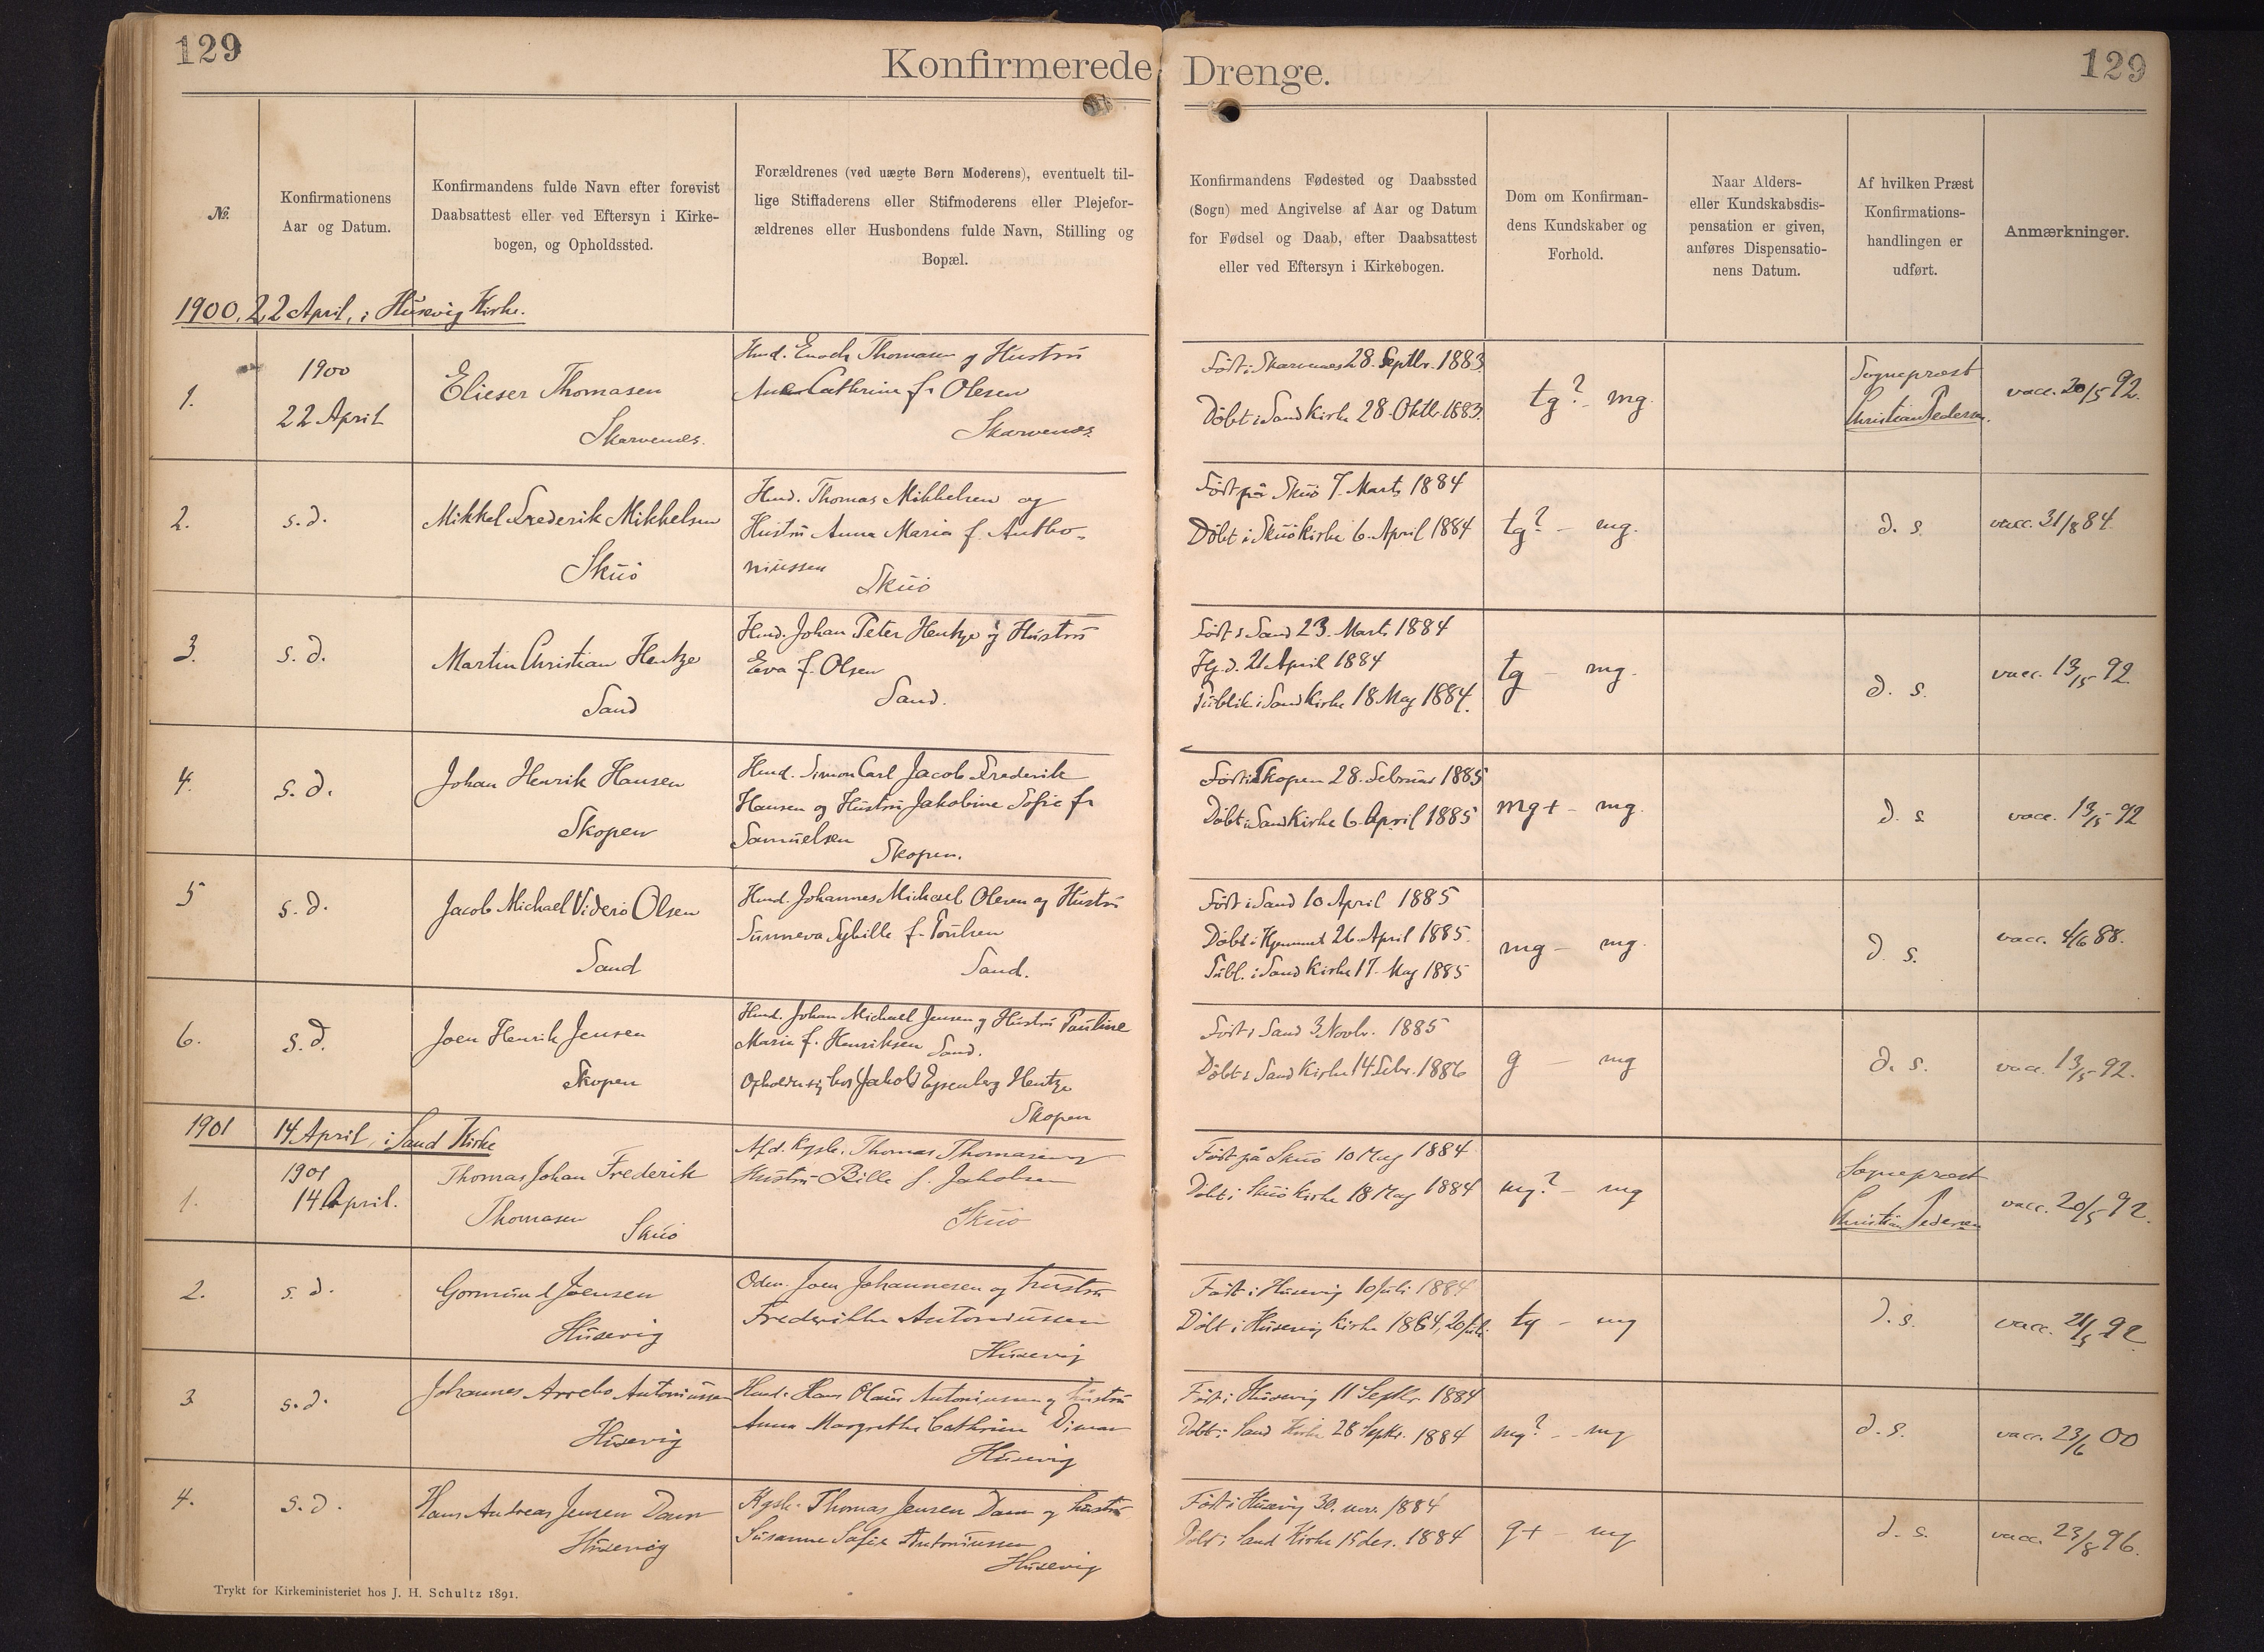 129
Konfirmerede Drenge.
129
№.
Konfirmationens
Aar og Datum.
Konfirmandens fulde Navn efter forevist
Daabsattest eller ved Eftersyn i Kirke-
bogen, og Opholdssted.
Forældrenes (ved uægte Børn Moderens), eventuelt til-
lige Stiffaderens eller Stifmoderens eller Plejefor-
ældrenes eller Husbondens fulde Navn, Stilling og
Bopæl.
Konfirmandens Fødested og Daabssted
(Sogn) med Angivelse af Aar og Datum
for Fødsel og Daab, efter Daabsattest
eller ved Eftersyn i Kirkebogen.
Dom om Konfirman-
dens Kundskaber og
Forhold.
Naar Alders-
eller Kundskabsdis-
pensation er given,
anføres Dispensatio-
nens Datum.
Af hvilken Præst
Konfirmations-
handlingen er
udført.
Anmærkninger.
1900. 22 April, i Husevig Kirke.
1.
1900
22 April
Elieser Thomasen
Skarvenes.
Hmd. Enoch Thomasen og Hustru
Cathrine f. Olesen
Skarvenes.
Født i Skarvenes 28. Septbr. 1883.
Döbt i Sand Kirke 28. Oktb. 1883.
tg? - mg.
Sognepræst
Christian Pedersen.
vacc. 20/5 92.
2.
s. d.
Mikkel Frederik Mikkelsen
Skúö
Hmd. Thomas Mikkelsen og
Hustru Anna Maria f. Antho-
niussen
Skúö
Født på Skúö 7. Marts 1884
Döbt i Skúö Kirke 6. April 1884
tg? - mg.
d. s.
vacc. 31/8 84.
3.
s. d.
Martin Christian Hentze
Sand
Hmd. Johan Peter Hentze og Hustru
Eva f. Olsen
Sand.
Født i Sand 23. Marts 1884
Hj. d. 21 April 1884
Publik i Sand Kirke 18 May 1884.
tg - mg.
d. s.
vacc. 13/5 92.
4.
s. d.
Johan Henrik Hansen
Skopen
Hmd. Simon Carl Jacob Frederik
Hansen og Hustru Jakobine Sofie f.
Samuelsen
Skopen.
Født i Skopen 28. Februar 1885
Döbt i Sand Kirke 6. April 1885
mg+ - mg.
d. s.
vacc. 13/5 92
5
s. d.
Jacob Michael Viderö Olsen
Sand
Hmd. Johannes Michael Olesen og Hustru
Sunneva Sybille f. Poulsen
Sand.
Født i Sand 10 April 1885
Döbt i Hjemmet 26 April 1885.
Publ. i Sand Kirke 17. May 1885
mg - mg.
d. s.
vacc. 4/6 88.
6.
s. d.
Joen Henrik Jensen
Skopen
Hmd. Johan Michael Jensen og Hustru Pauline
Maria f. Henriksen Sand.
Opholder sig hos Jakob Hentze
Skopen
Født i Sand 3 Novbr. 1885
Döbt i Sand Kirke 14 Febr. 1886
g - mg
d. s.
vacc. 13/5 92.
1901 14 April, i Sand Kirke
1.
1901
14 April.
Thomas Johan Frederik
Thomasen
Skúö
Afd. Thomas Thomasen og
Hustru Bille f. Jakobsen
Skúö
Født på Skúö 10 May 1884
Döbt i Skúö Kirke 18 May 1884
mg? - mg
Sognepræst
Christian Pedersen
vacc. 20/5 92.
2.
s. d.
Gormund Joensen
Husevig
Joen Johannesen og hustru
Frederikke Antoniussen
Husevig
Født i Husevig 10 Juli 1884
Döbt i Husevig Kirke 1884, 20 Juli.
tg - mg
d. s.
vacc. 21/5 92
3
s. d.
Johannes Arrebo Antoniussen
Husevig
Hmd. Hans Olaus Antoniussen og hustru
Anna Margrethe Cathrine
Husevig
Født i Husevig 11 Septbr. 1884
Döbt i Sand Kirke 28 Septbr. 1884
mg? - mg
d. s.
vacc. 23/6 00
4.
s. d.
Hans Andreas Jensen Dam
Husevig
Thomas Jensen Dam og hustru
Susanne Sofie Antoniussen
Husevig
Født i Husevig 30. nov. 1884
Döbt i Sand Kirke 15 des. 1884
g+ - mg
d. s.
vacc. 23/8 96.
Trykt for Kirkeministeriet hos J. H. Schultz 1891.